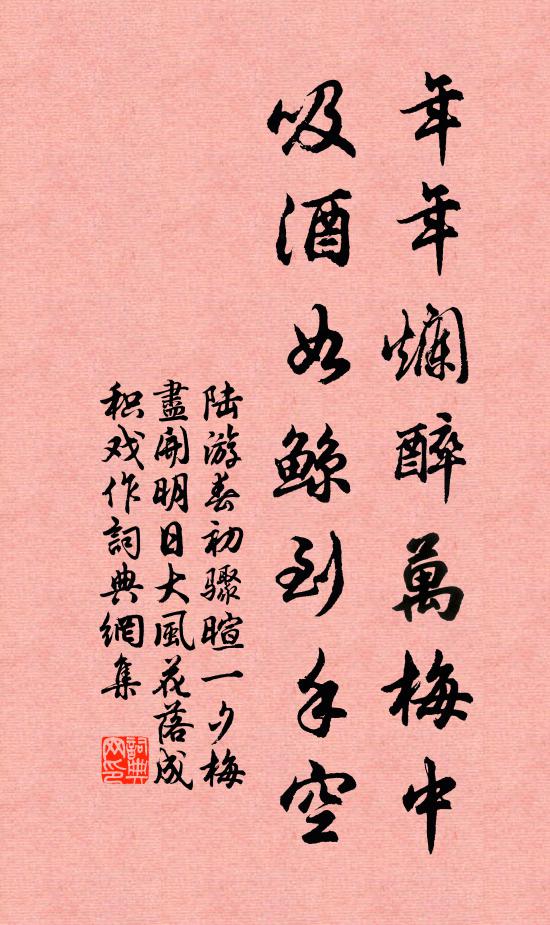 年年爛醉萬梅中
吸酒如鲸到手空
陆游春初骤暄一夕梅
盡開明日大風花落成
积戏作詞典網集
詞典网印